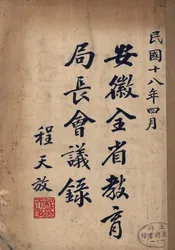 民國十八年四月
安徽全省教育
局長會議錄
程天放